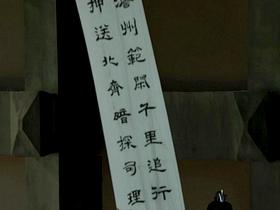 澹州範閑千里追行
押送北齊暗探司理